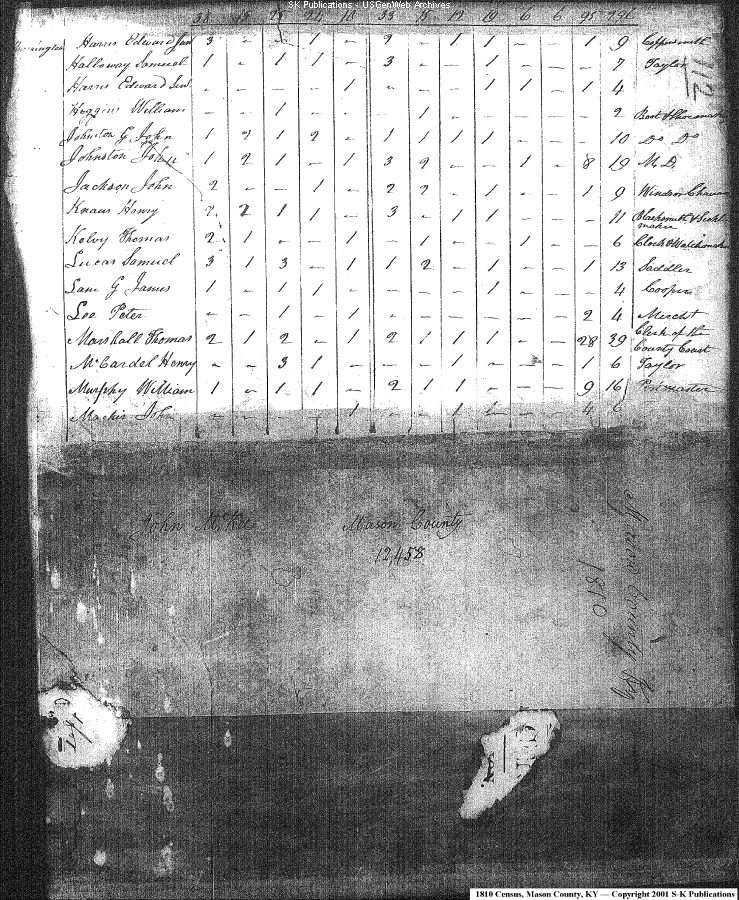 SK Publications - USGenWeb Archives
38 15 23 24 18 33 15 12 19 6 6 95 296
Harris Edward Jun 3 - 1 1 - 2 - 1 1 - - 1 9 Coppersmith
Halloway Samuel 1 - 1 1 - 3 - - 1 - - - 7 Taylor
Harris Edward Sen - - - - 1 - - - 1 1 - 1 4
Heggin William - - 1 - - - 1 - - - - - 2 Boot & Shoemaker
Johnston G John 1 2 1 2 - 1 1 1 1 - - - 10 Do Do
Johnston John 1 2 1 - 1 3 2 - - 1 - 8 19 M.D.
Jackson John 2 - - 1 - 2 2 - 1 - - 1 9 Windsor
Knaus Henry 2 2 1 1 - 3 - 1 1 - - - 11 Blacksmith &
maker
Kelvy Thomas 2 1 - - 1 - 1 - - 1 - - 6 Clock & Watchmaker
Lucas Samuel 3 1 3 - 1 1 2 - 1 - - 1 13 Saddler
Lane G James 1 - 1 1 - - - - 1 - - - 4 Cooper
Lee Peter - - 1 - 1 - - - - - - 2 4 Mercht
Marshall Thomas 2 1 2 - 1 2 1 1 1 - - 28 39 Clerk of the
County Court
McCardel Henry - - 3 1 - - - 1 - - 1 6 Taylor
Murphy William 1 - 1 1 - 2 1 1 - - - 9 16 Postmaster
Mackir John - - - - 1 - - 1 - - 4 6
112
John McKee
Mason County
12,458
Mason County Ky
1810
1810 Census, Mason County, KY — Copyright 2001 S-K Publications